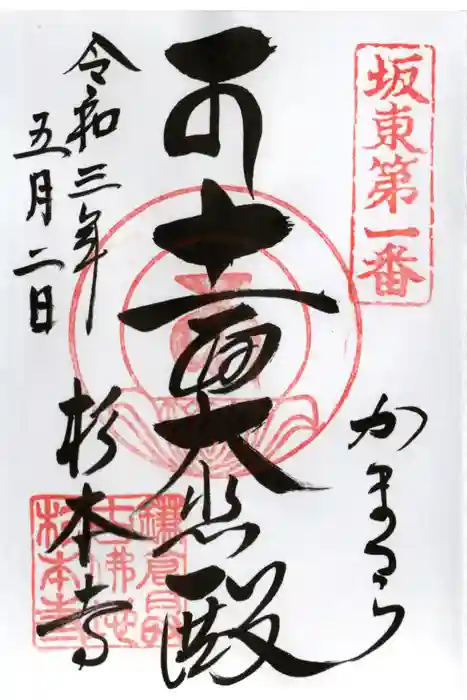 坂東第一番
かまくら
十一面大悲殿
令和三年
五月二日
杉本寺
杉本寺